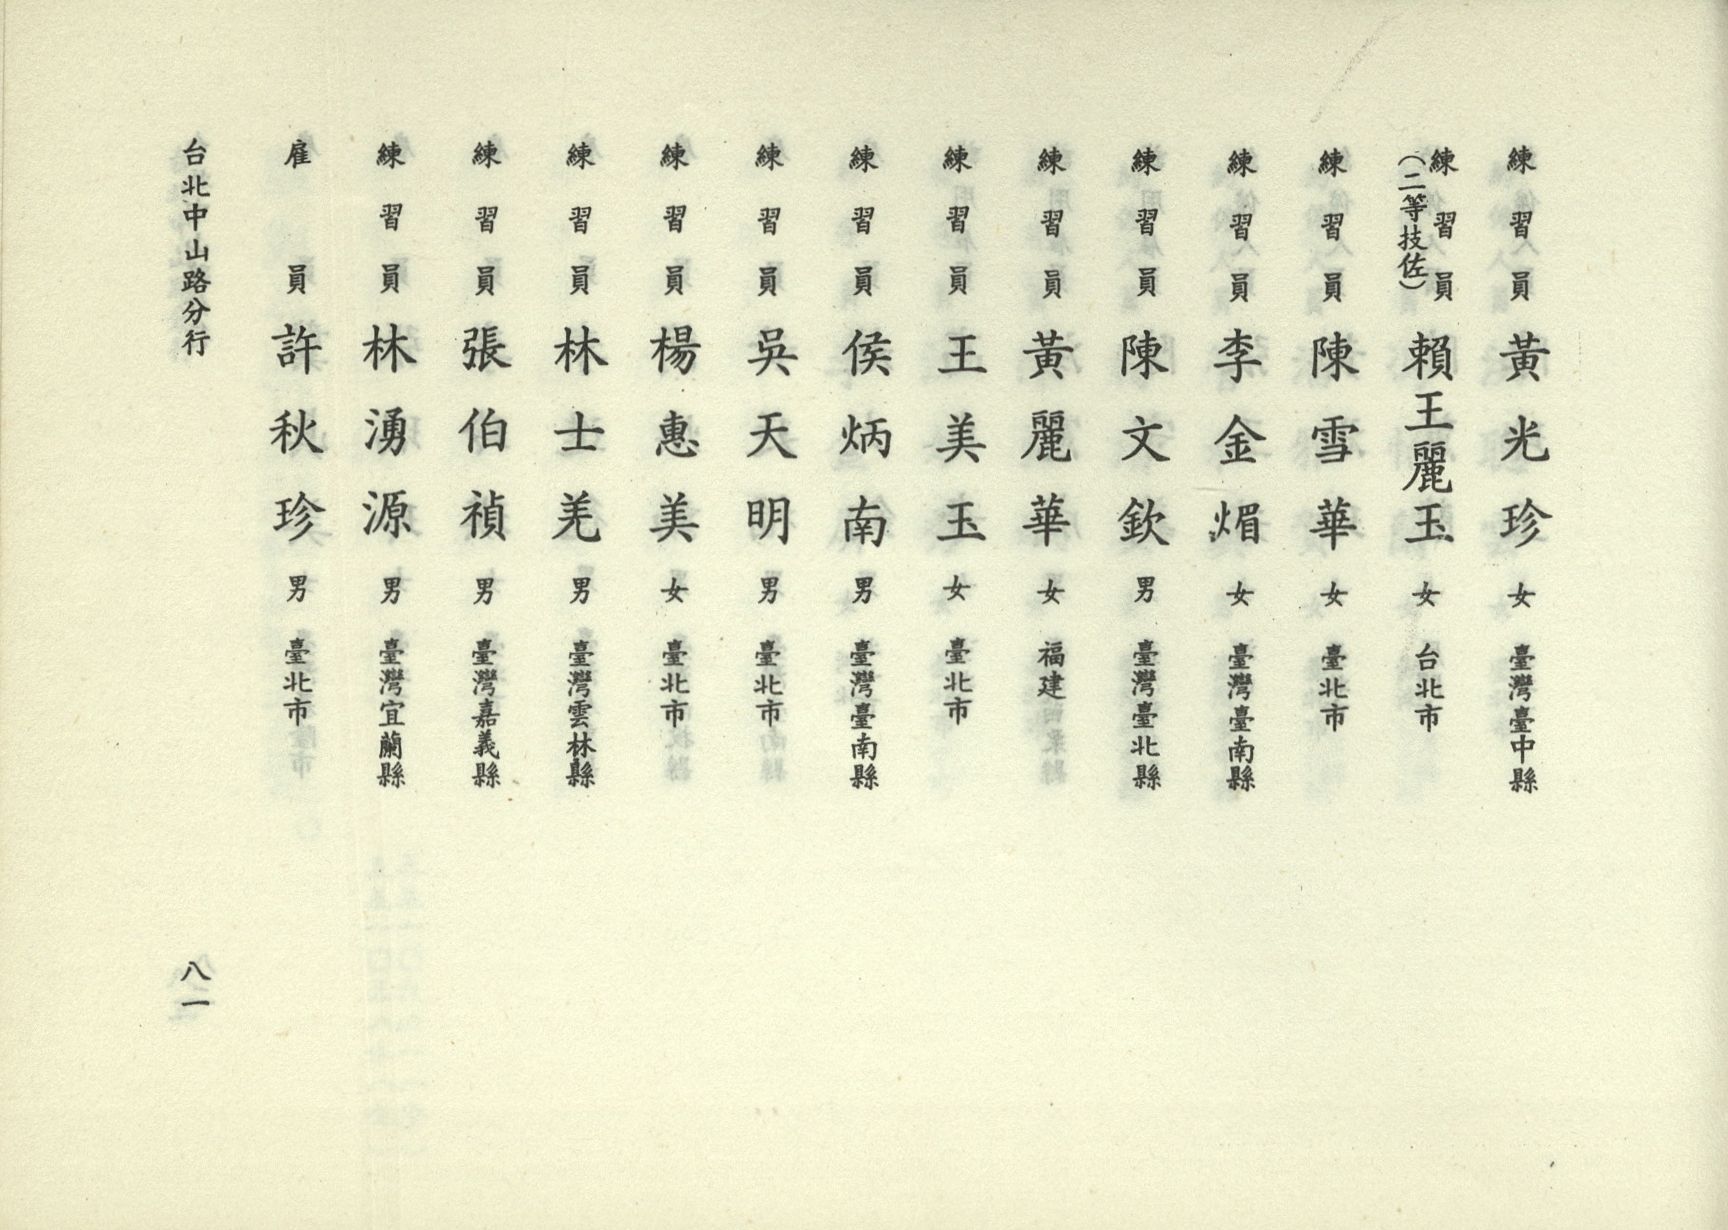 練習員 黃光珍 女 臺灣臺中縣
練習員(二等技佐) 賴王麗玉 女 台北市
練習員 陳雪華 女 臺北市
練習員 李金煝 女 臺灣臺南縣
練習員 陳文欽 男 臺灣臺北縣
練習員 黃麗華 女 福建
練習員 王美玉 女 臺北市
練習員 侯炳南 男 臺灣臺南縣
練習員 吳天明 男 臺北市
練習員 楊惠美 女 臺北市
練習員 林士羌 男 臺灣雲林縣
練習員 張伯禎 男 臺灣嘉義縣
練習員 林湧源 男 臺灣宜蘭縣
雇員 許秋珍 男 臺北市
台北中山路分行 八一